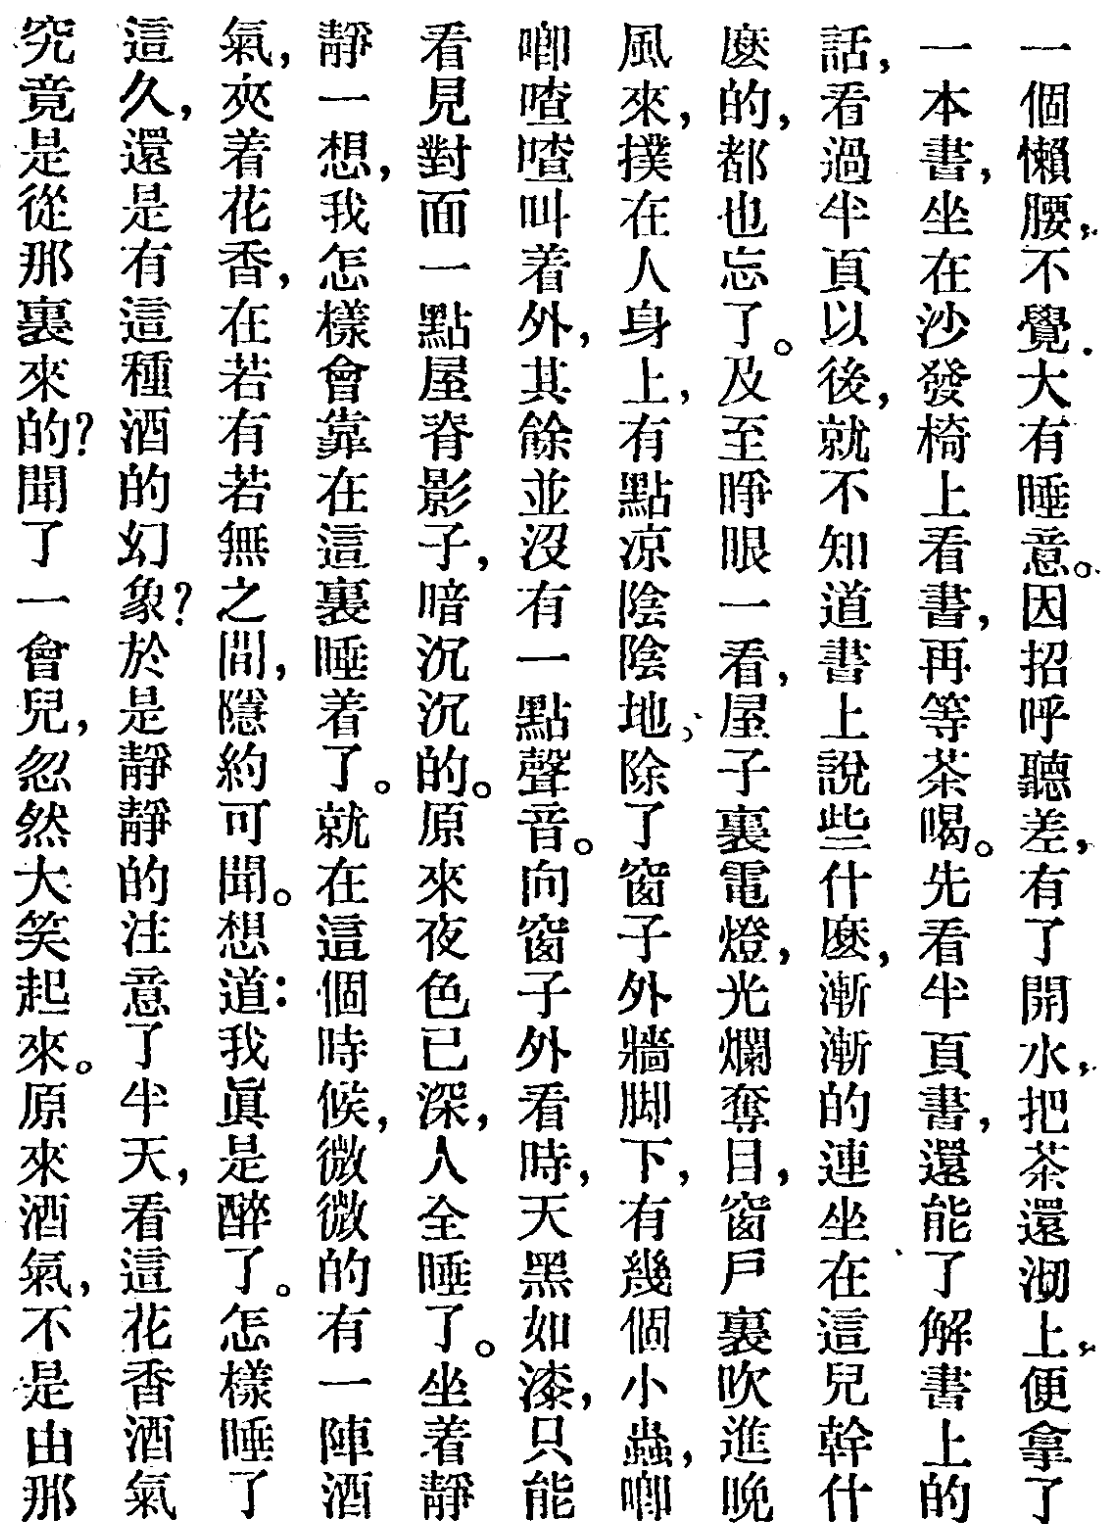 一個懶腰，不覺大有睡意。因招呼聽差，有了開水，把茶還沏上，便拿了
一本書，坐在沙發椅上看書，再等茶喝。先看半頁書，還能了解書上的
話，看過半頁以後，就不知道書上說些什麽，漸漸的連坐在這兒幹什
麽的，都也忘了。及至睜眼一看，屋子裏電燈，光爛奪目，窗戶裏吹進晚
風來，撲在人身上，有點涼陰陰地，除了窗子外牆脚下，有幾個小蟲，唧
唧喳喳叫着外，其餘並沒有一點聲音。向窗子外看時，天黑如漆，只能
看見對面一點屋脊影子，暗沉沉的。原來夜色已深，人全睡了。坐着靜
靜一想，我怎樣會靠在這裏睡着了。就在這個時候，微微的有一陣酒
氣，夾着花香，在若有若無之間，隱約可聞。想道：我眞是醉了。怎樣睡了
這久，還是有這種酒的幻象？於是靜靜的注意了半天，看這花香酒氣
究竟是從那裏來的？聞了一會兒，忽然大笑起來。原來酒氣，不是由那